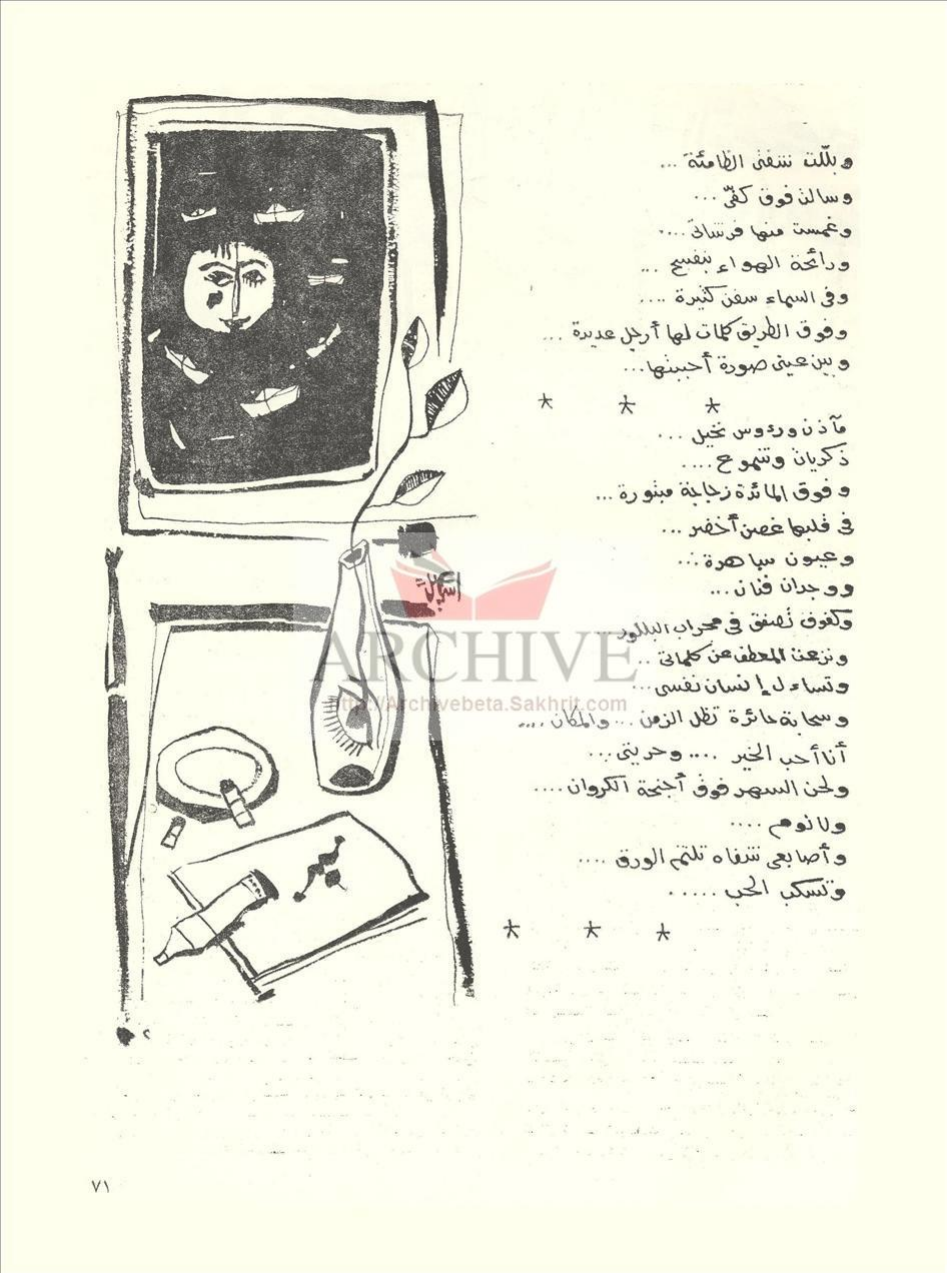 وبلّلت شفتى الظامئة ...
وسالت فوق كفّى ...
وغمست منها فرشاتى ....
ورائحة الهواء بنفسج ...
وفى السماء سفن كثيرة ....
وفوق الطريق كلمات لها أرجل عديدة ...
وبين عينى صورة أحببتها...
* * *
مآذن ورءوس نخيل ...
ذكريات وتنموع ....
وفوق المائدة زجاجة مبتورة ...
فى قلبها غصن أخضر ...
وعيون ساهرة ...
ووجدان فنان ...
وكفوف تُصفق فى محراب البللور
ونزعت المعطف عن كلماتى ..
وتساءل إنسان نفسى ...
وسحابة حائرة تظل الزمن ... والمكان ....
أنا أحب الخير .... وحريتى ...
ولحن السهر فوق أجنحة الكروان ....
ولا نوم ....
وأصابعى شفاه تلتئم الورق ....
وتسكب الحب .....
* * *
ARCHIVE
http://Archivebeta.Sakhrit.com
٢
٧١